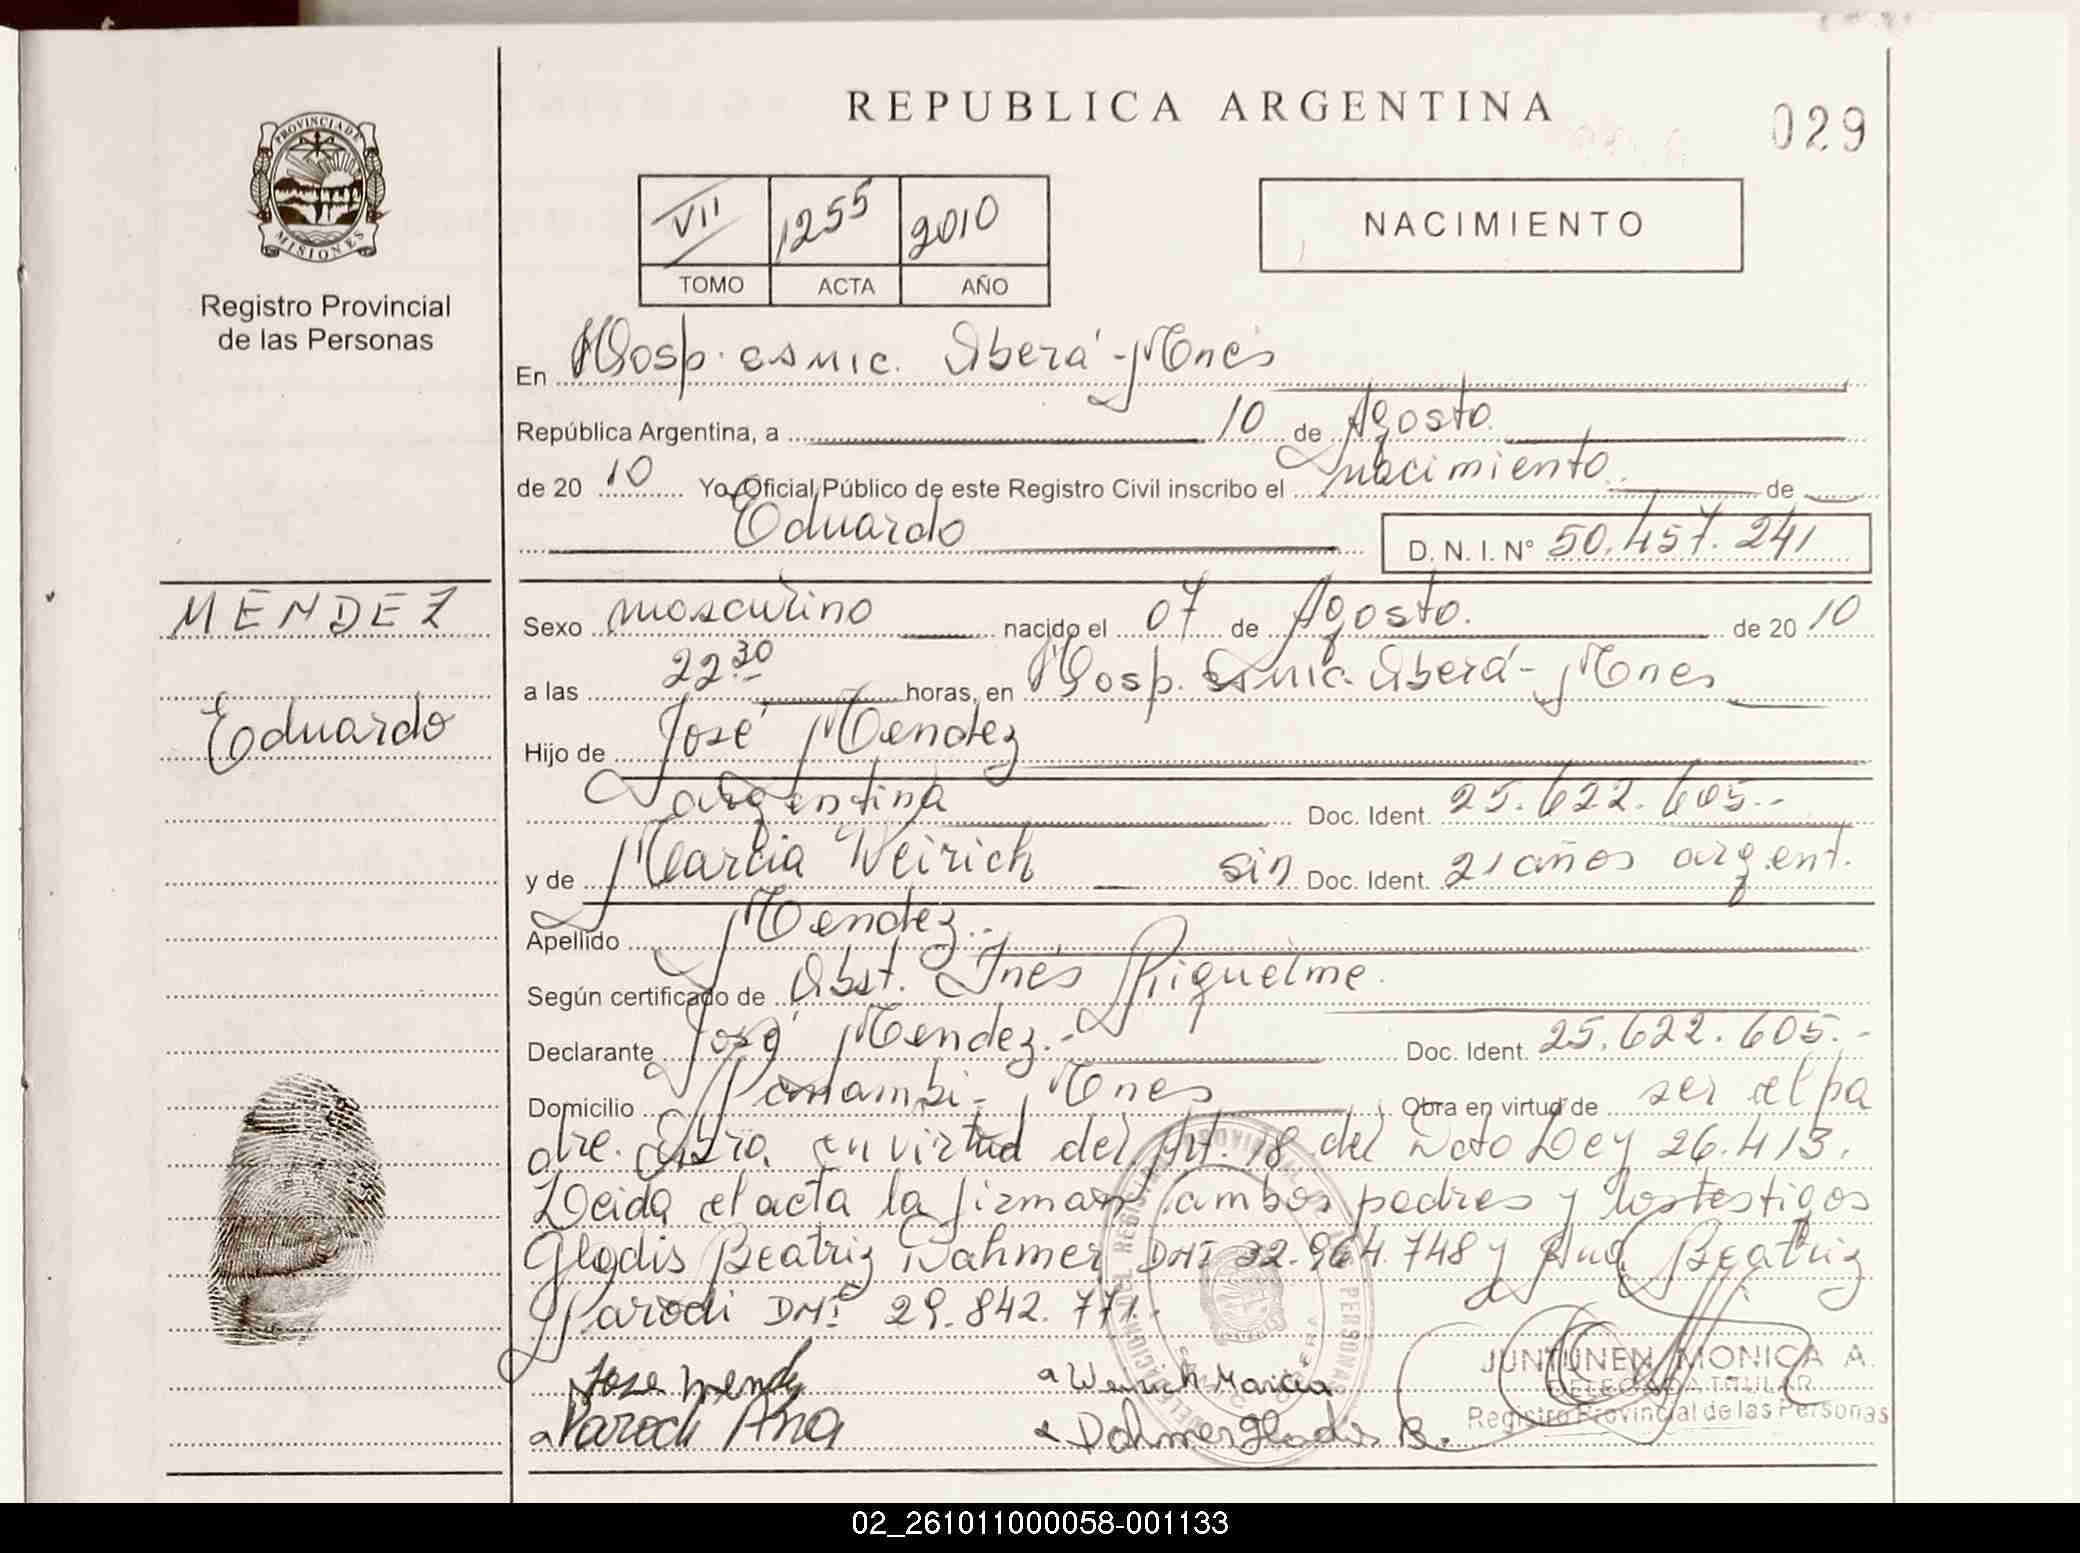 REPUBLICA ARGENTINA
029
PROVINCIA DE
MISIONES
Registro Provincial
de las Personas
VII 1255 2010
TOMO ACTA AÑO
NACIMIENTO
En Hosp. Samic. Oberá - Mnes
República Argentina, a 10 de Agosto
de 20 10 Yo, Oficial Público de este Registro Civil inscribo el nacimiento de
Eduardo D. N. I. N° 50.457.241
MENDEZ
Eduardo
Sexo masculino nacido el 07 de Agosto. de 20 10
a las 22 30 horas, en Hosp. Samic. Oberá - Mnes
Hijo de José Mendez
argentina Doc. Ident. 25.622.605.-
y de Marcia Weirich sin Doc. Ident. 21 años argent.
Apellido Mendez.-
Según certificado de Obst. Inés Riquelme.
Declarante José Mendez.- Doc. Ident. 25.622.605.-
Domicilio Panambi - Mnes Obra en virtud de ser el pa
dre. Obra en virtud del Art. 18 del Dcto Ley 26.413.
Leida el acta la firman ambos padres y los testigos
Gladis Beatriz Dahmer DNI 32.964.748 y Ana Beatriz
Parodi DNI 29.842.771.-
Jose Mendez Weirich Marcia
Parodi Ana Dahmer Gladis B.
JUNTUNEN MONICA A.
DELEGADA TITULAR
Registro Provincial de las Personas
02_261011000058-001133